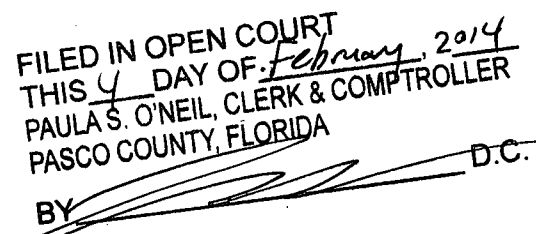 FILED IN OPEN COURT
THIS 4 DAY OF February, 2014
PAULA S. O'NEIL, CLERK & COMPTROLLER
PASCO COUNTY, FLORIDA
BY D.C.